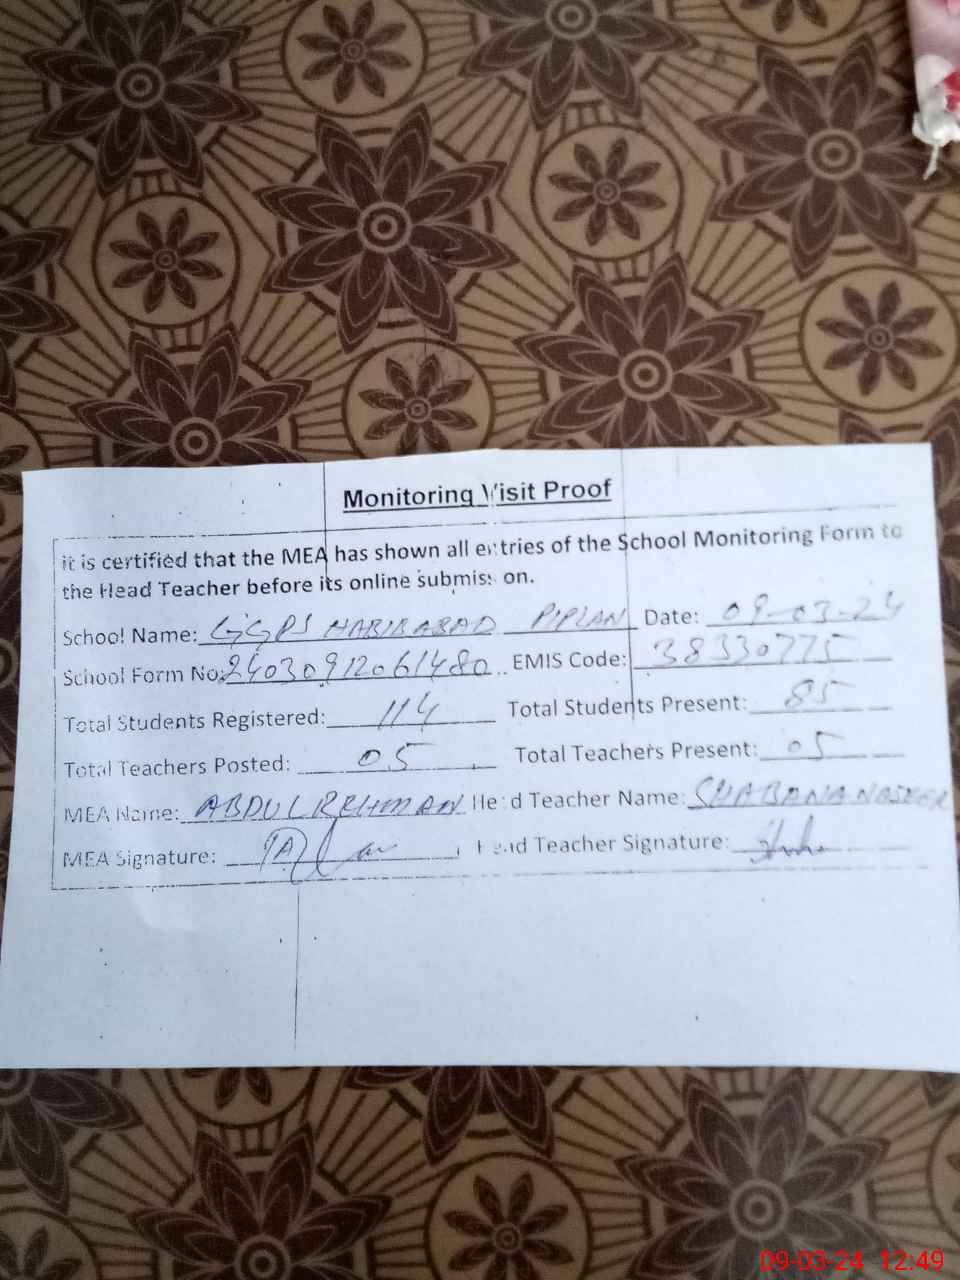 Monitoring Visit Proof
it is certified that the MEA has shown all entries of the School Monitoring Form to
the Head Teacher before its online submission.
School Name: GGPS HABIBABAD PIPLAN Date: 09-03-24
School Form No: 24030912061480 EMIS Code: 38330775
Total Students Registered: 114 Total Students Present: 85
Total Teachers Posted: 05 Total Teachers Present: 05
MEA Name: ABDULREHMAN Head Teacher Name: SHABANA NASEER
MEA Signature: Head Teacher Signature:
09-03-24 12:49